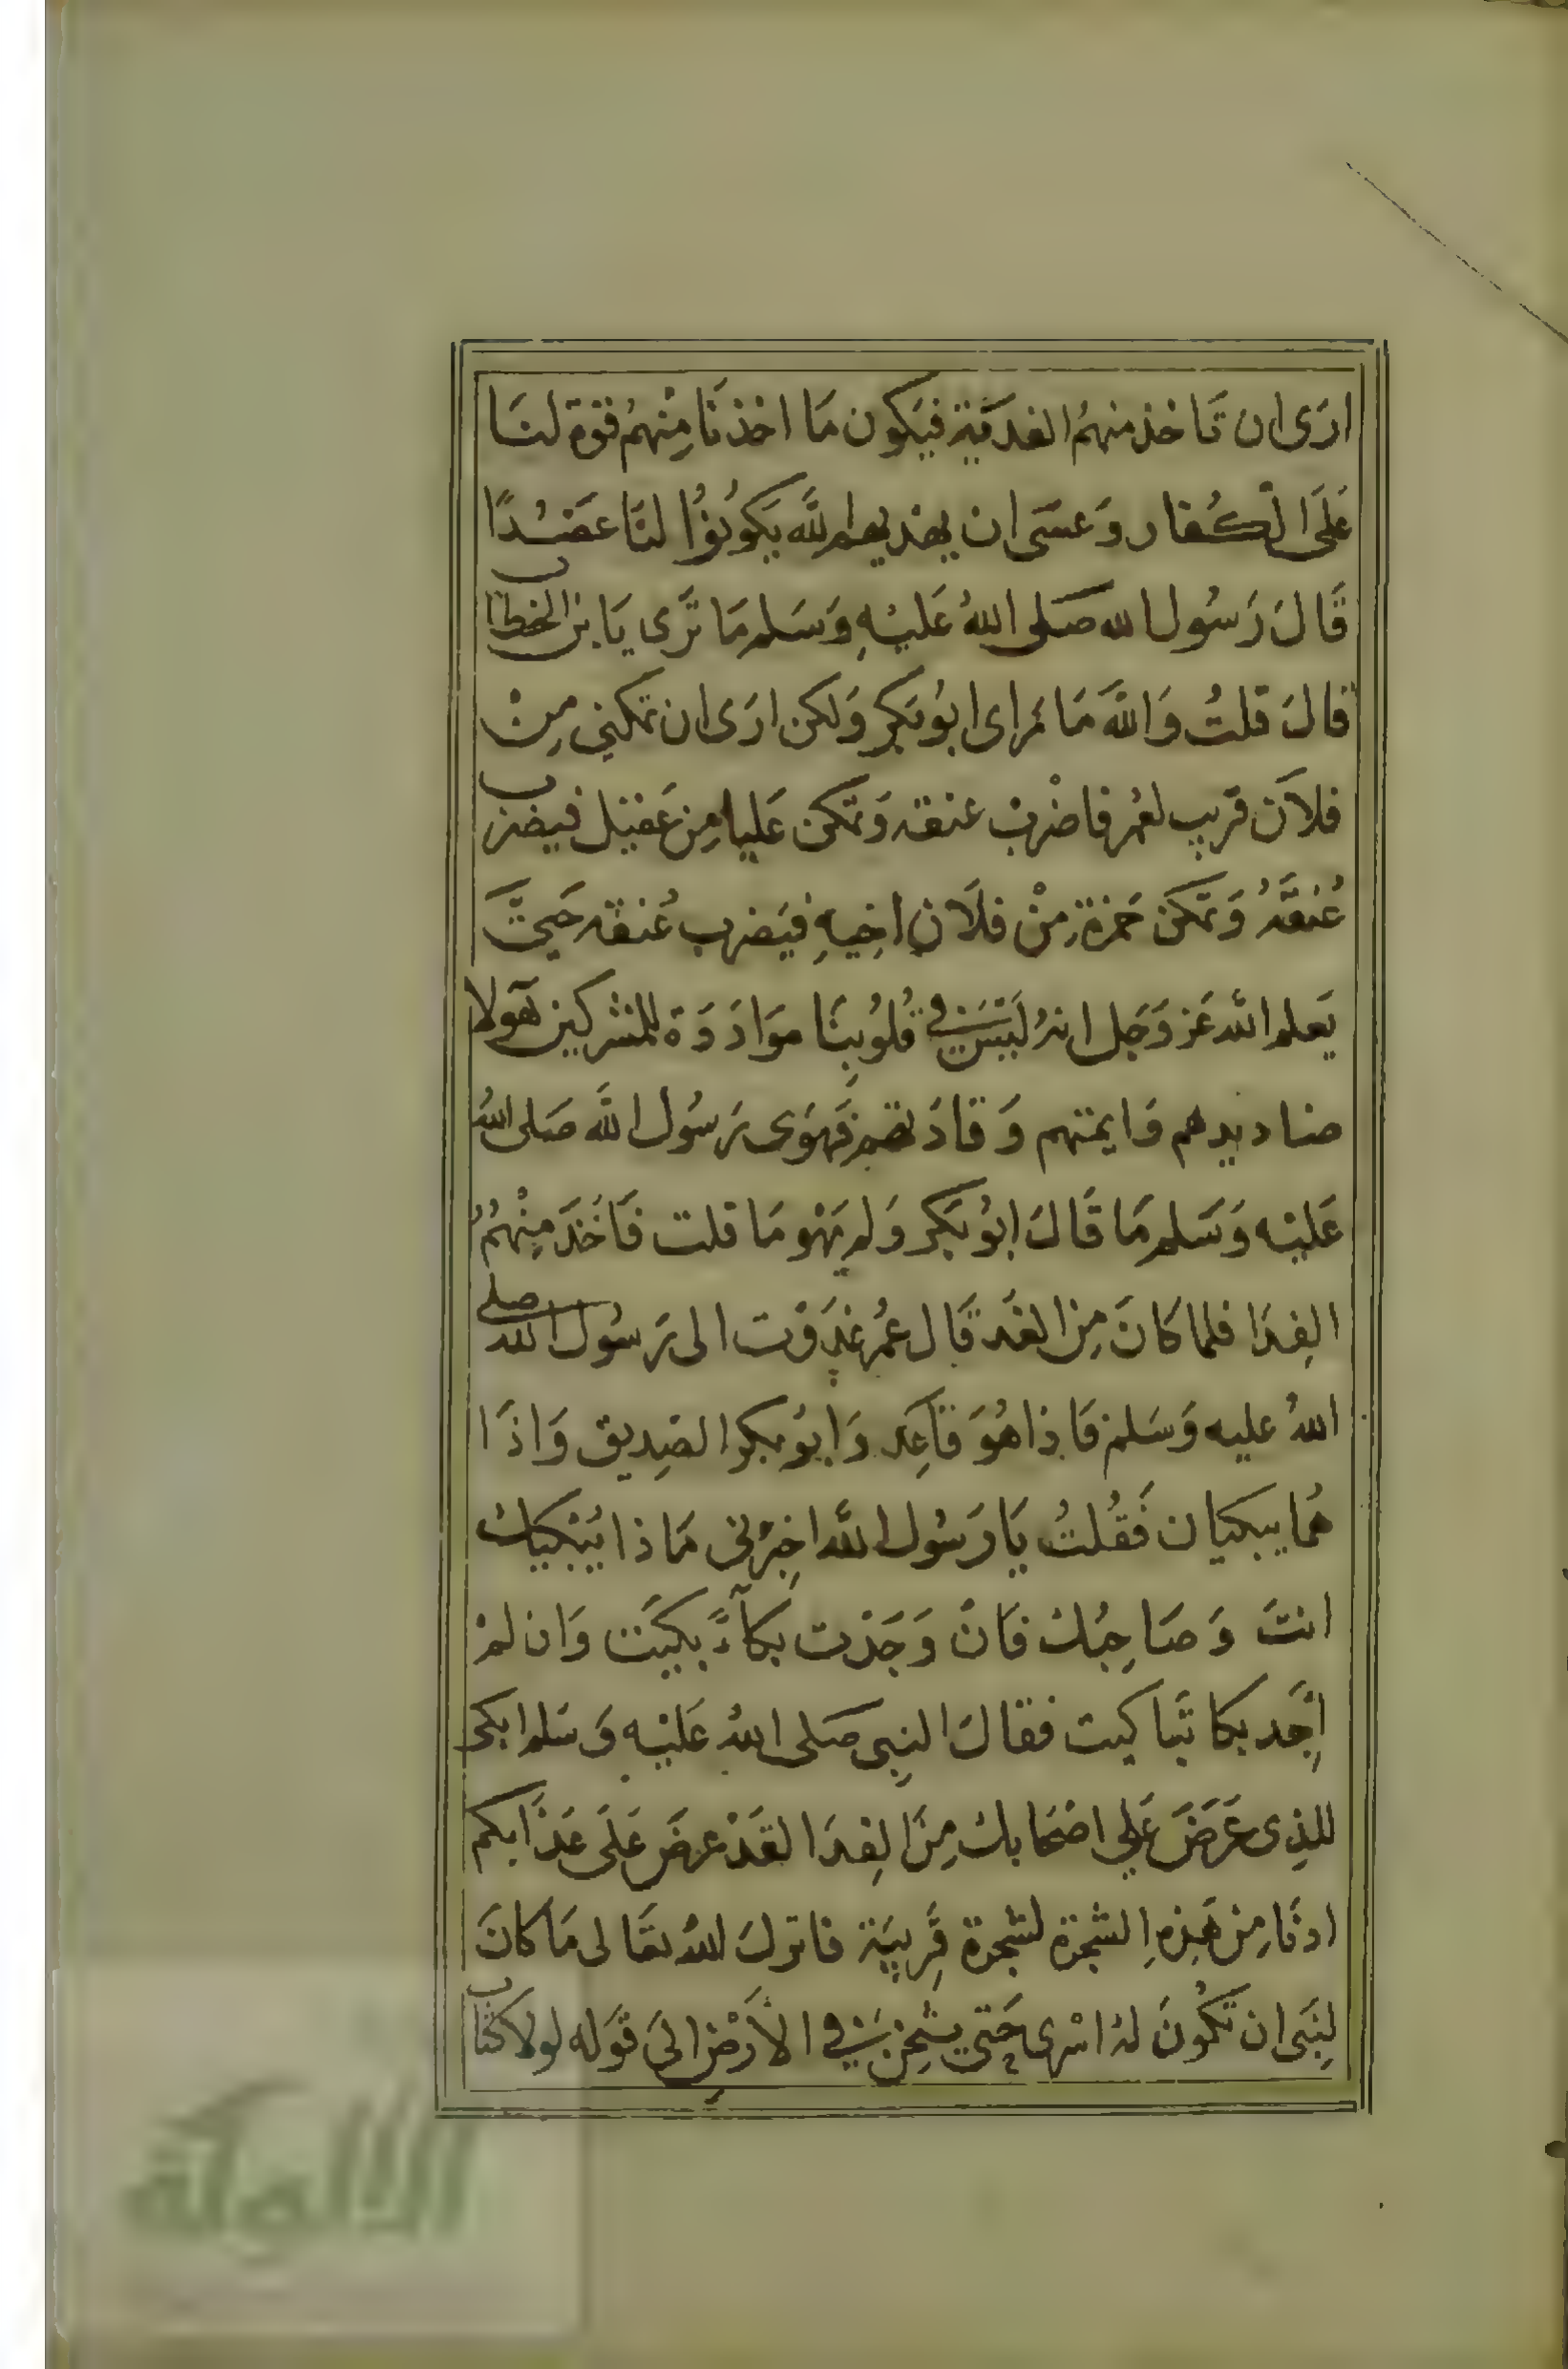 ارَى ان تَاخذ منهمُ الفدَيَة فيَكون مَا اخذنَا مِنْهمُ قوة لنَا
عَلَى الْكُفار وَعسَى ان يهديهم اللَّه يَكوُنوُا لنَا عضُدًا
قَالَ رَسُول الله صَلى اللهُ عَليْهِ وَسَلم مَا تَرى يَا بن الخطاب
قالَ قلتُ وَاللَّه مَا نرَاى ابوُبكرِ وَلكن ارَى ان تمكني مِنْ
فلاَن قريب لعُمر فاضْربْ عنقه وَتمكن عَليا مِن عَقيل فيضرب
عُنقَهُ وَتمكن حَمزةَ مِنْ فلاَن اخِيهِ فيَضرب عُنقه حَتىَّ
يَعلم اللَّه عَز وَجَل انهُ ليْسَ في قُلوُبِنَا موَادَدَة للمُشركين هَولا
صنا ديدهم وَايمتهم وَقادَتهم فَهَوَى رَسُول اللَّه صَلى اللهُ
عَليْه وَسَلم مَا قَالَ ابوُبَكر وَلم يَهْو مَا قلت فَاخَذَ مِنْهمُ
الفِدَا فلما كَانَ مِن الغَد قَال عُمر غدَوْت الى رَسُول الله صلى
اللهُ عليه وَسَلم فَاذا هُوَ قَاعِد وَابوُبكر الصِديق وَاذَا
همُا يبكيان فَقُلتُ يَا رَسُول اللَّه اخِبرْنى مَا ذا يُبْكيك
انتَ وَصَاحِبُك فَانْ وَجَدْت بكآءً بكيَت وَان لمْ
اجَد بكا تَبا كيت فقالَ النِبى صَلى اللهُ عَليْه وَسَلم ابكى
للذِى عَرَضَ عَلي اصْحَابك مِنَ الفِدَا لقَدْ عرضَ عَلَى عَذَابكم
ادنَا مِنْ هَذِهِ الشجرَة لشجرَة قَرِيبَة فانزلَ اللهُ تعَالى مَا كانَ
لِنَبَى ان تَكُونَ لهُ اسْرى حَتى يثخِنَ في الاَرْض الىَ قوَله لولا كتاب